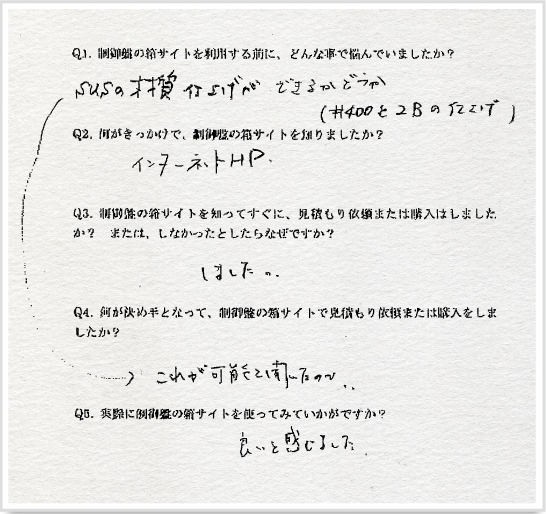 Q1. 制御盤の箱サイトを利用する前に、どんな事で悩んでいましたか？
SUSの材質 仕上げが できるかどうか
(#400と2Bの仕上げ)
Q2. 何がきっかけで、制御盤の箱サイトを知りましたか？
インターネットHP.
Q3. 制御盤の箱サイトを知ってすぐに、見積もり依頼または購入はしました
か？ または、しなかったとしたらなぜですか？
しました。
Q4. 何が決め手となって、制御盤の箱サイトで見積もり依頼または購入をしま
したか？
これが可能と聞いたので..
Q5. 実際に制御盤の箱サイトを使ってみていかがですか？
良いと感じました.